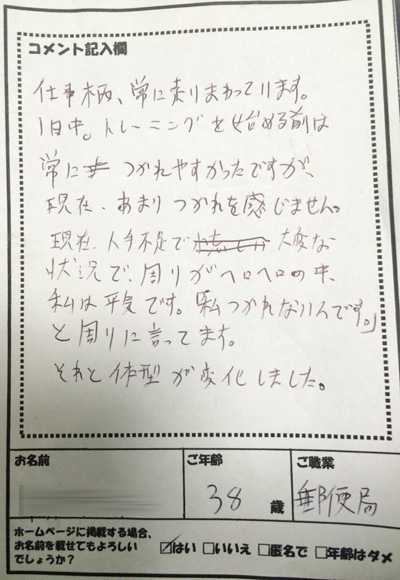 コメント記入欄
仕事柄、常に走りまわっています。
1日中。トレーニングを始める前は
常に つかれやすかったですが、
現在、あまりつかれを感じません。
現在、人手不足で 大変な
状況で、周りがヘロヘロの中、
私は平気です。「私つかれないんです。」
と周りに言ってます。
それと体型が変化しました。
お名前
ご年齢
38 歳
ご職業
郵便局
ホームページに掲載する場合、
お名前を載せてもよろしい
でしょうか?
☑はい □いいえ □匿名で □年齢はダメ